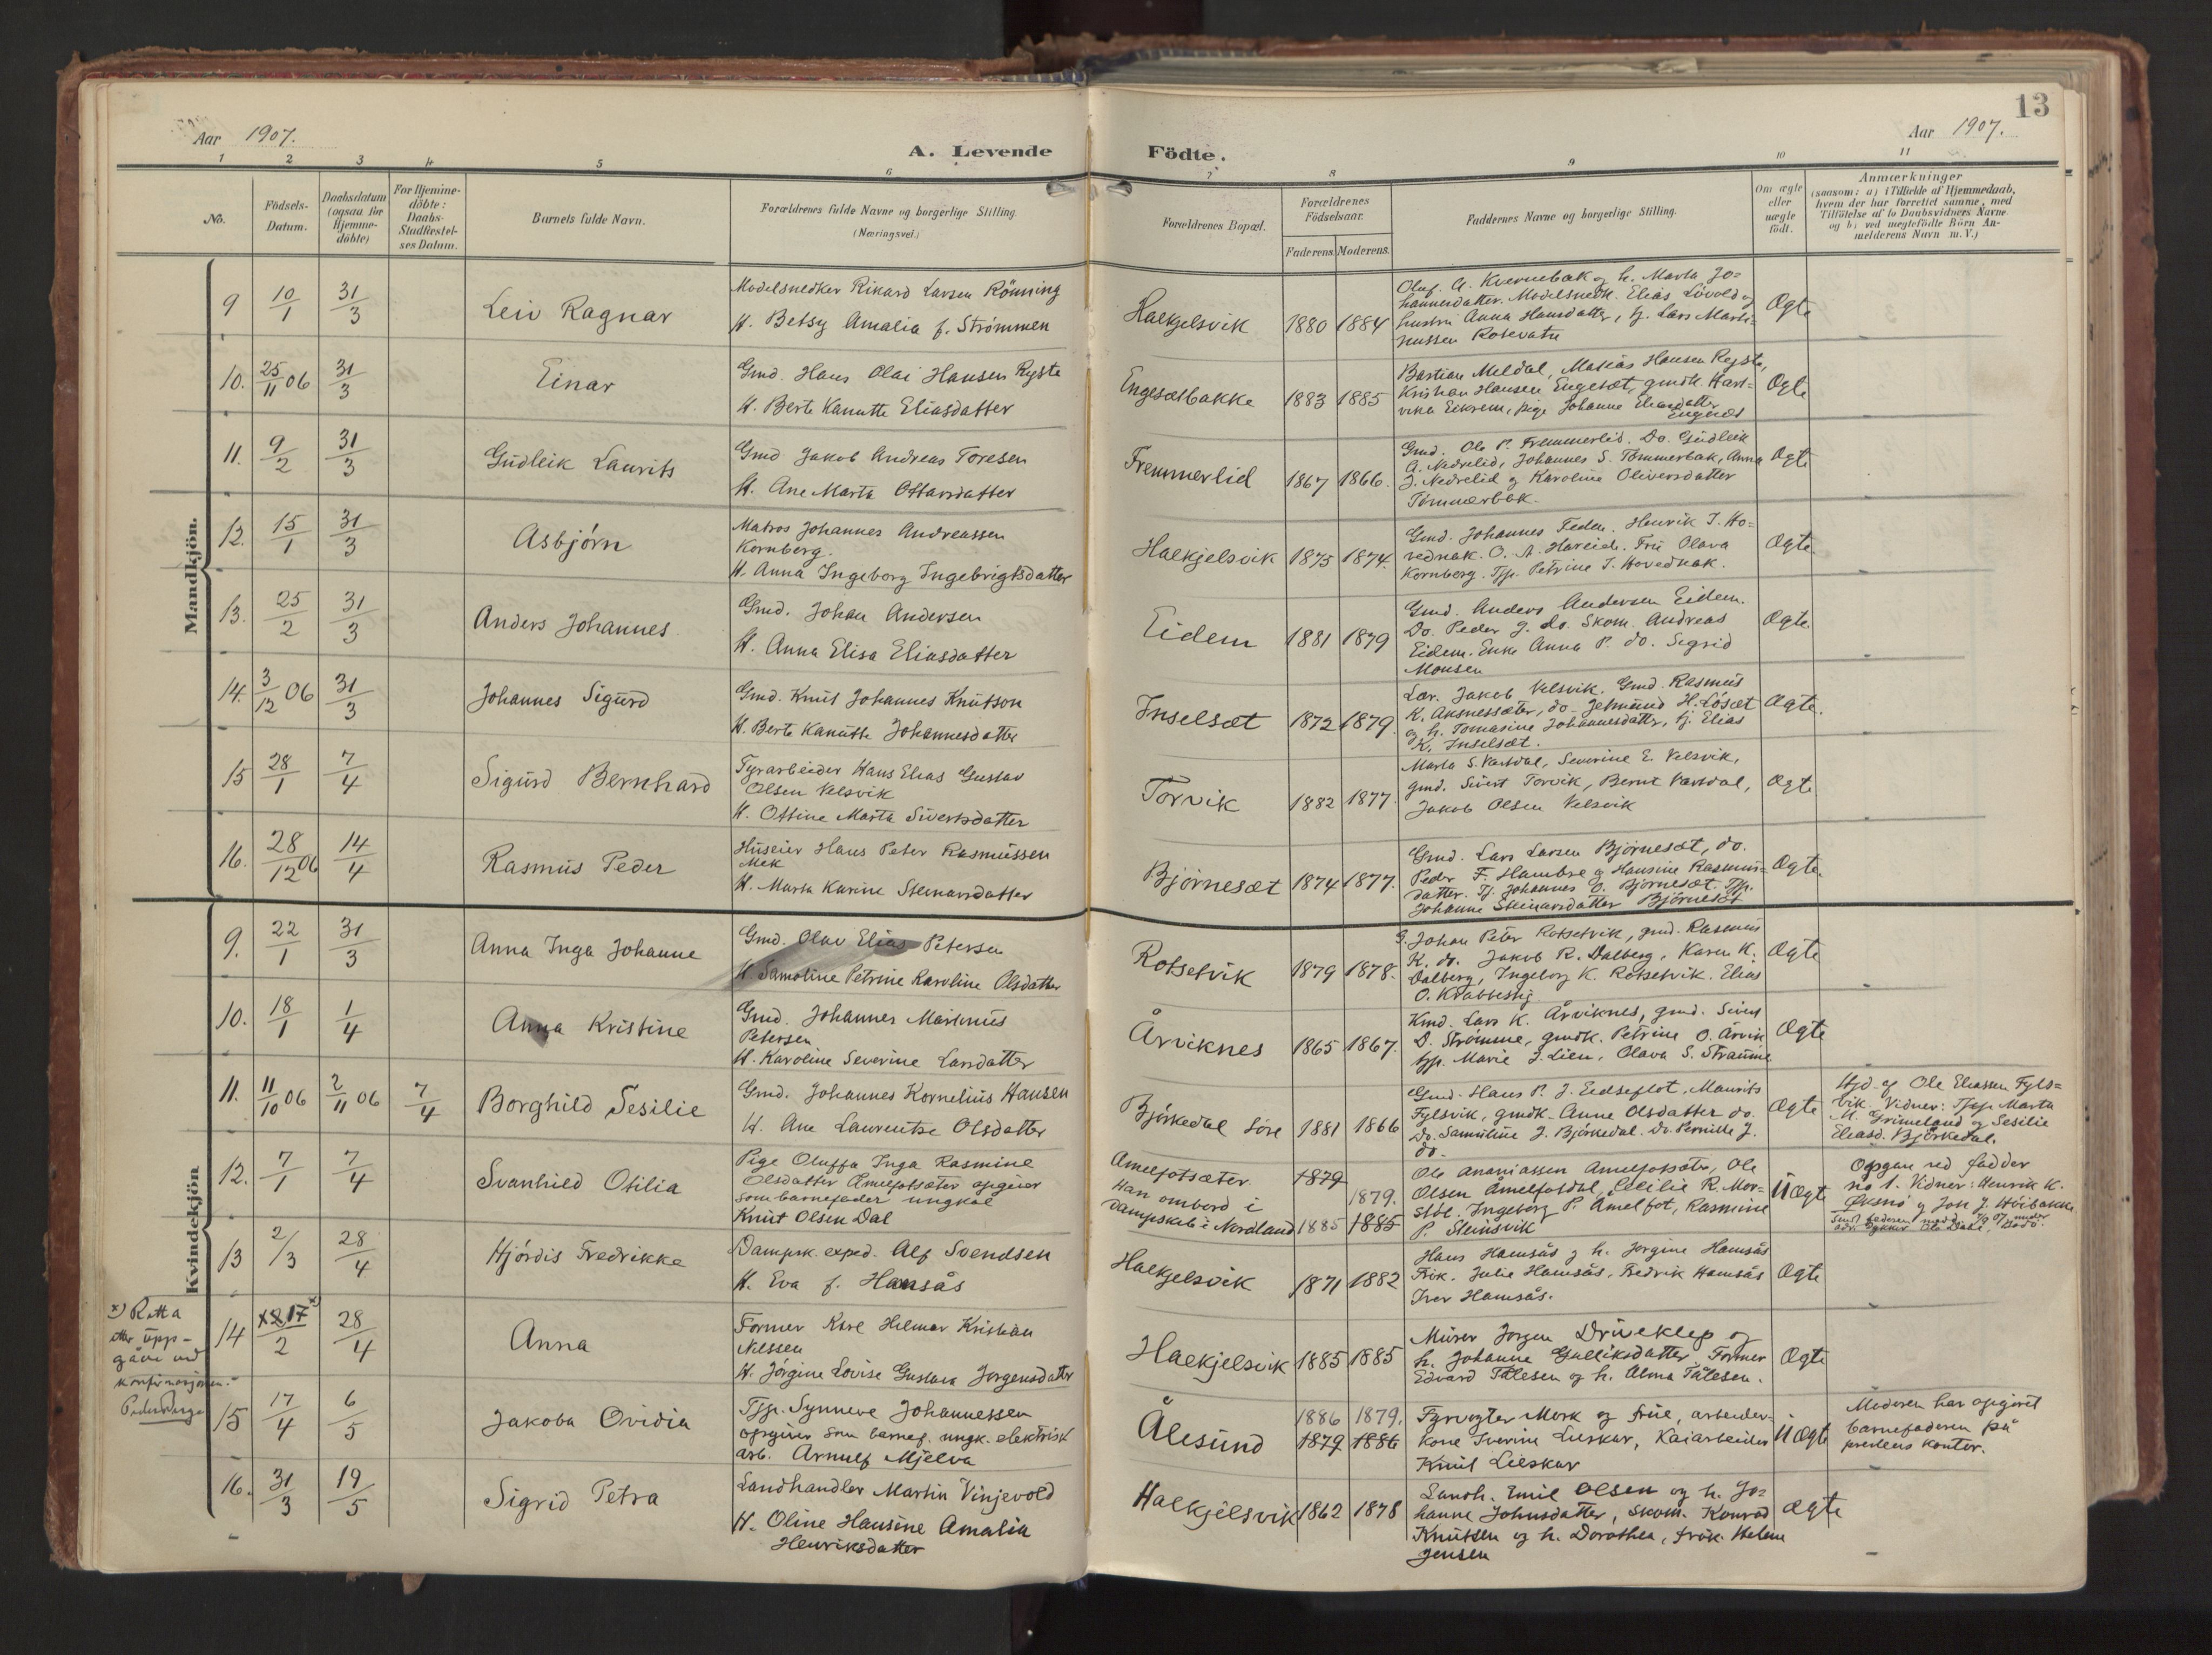 13
Aar 1907.
A. Levende Födte.
Aar 1907.
1 2 3 4 5 6 7 8 9 10 11
No.
Födsels-
Datum.
Daabsdatum
(ogsaa for
Hjemme-
döbte)
For Hjemme-
döbte:
Daabs-
Stadfestel-
ses Datum.
Barnets fulde Navn.
Forældrenes fulde Navne og borgerlige Stilling.
(Næringsvei.)
Forældrenes Bopæl.
Forældrenes
Födselsaar.
Faderens. Moderens.
Faddernes Navne og borgerlige Stilling.
Om ægte
eller
uægte
födt.
Anmærkninger
(saasom: a) i Tilfælde af Hjemmedaab,
hvem der har forrettet samme, med
Tilföielse af to Daabsvidners Navne
og b) ved uægtefödte Börn An-
melderens Navn m. V.)
Mandkjön.
9 10/1 31/3 Leiv Ragnar
Modelsnedker Rikard Larsen Rönning
H. Betsy Amalia f. Strömmen
Halkjelsvik 1880 1884
Oluf. A. Kvernebak og h. Marta Jo-
hannesdatter. Modelsnedk. Elias Lövold og
hustru Anna Hansdatter, tj. Lars Marti-
nussen Rotevatn
Ægte
10. 25/11 06 31/3 Einar
Gmd. Hans Olai Hansen Ryste
H. Berte Kanutte Eliasdatter
Engesætbakke 1883 1885
Bastian Meldal, Matias Hansen Ryste,
Kristian Hansen Engesæt, gmdk. Hart-
vika Eikrem, pige Johanne Eliasdatter
Engesæt
Ægte
11. 9/2 31/3 Gudleik Laurits
Gmd. Jakob Andreas Toresen
H. Ane Marta Ottarsdatter
Fremmerlid 1867 1866.
Gmd. Ole P. Fremmerlid. Do. Gudleik
A. Nedrelid, Johannes S. Tömmerbak, Anna
J. Nedrelid og Karoline Oliversdatter
Tömmerbak.
Ægte
12. 15/1 31/3 Asbjörn
Matros Johannes Andreassen
Kornberg.
H. Anna Ingeborg Ingebrigtsdatter
Halkjelsvik 1875 1874.
Gmd. Johannes Feden. Henrik I. Ho-
vednak. O. A. Hareide. Fru Olava
Kornberg. Tjp. Petrine I. Hovednak.
Ægte
13. 25/2 31/3 Anders Johannes.
Gmd. Johan Andersen
H. Anna Elisa Eliasdatter
Eidem 1881 1879
Gmd. Anders Andersen Eidem.
Do. Peder J. do. Skom. Andreas
Eidem. Enke Anna P. do. Sigrid
Monsen
Ægte.
14. 3/12 06 31/3 Johannes Sigurd
Gmd. Knut Johannes Knutson
H. Berte Kanutte Johannesdatter
Inselsæt 1872 1879.
Lær. Jakob Velsvik. Gmd. Rasmus
K. Aksnessæter, do. Jetmund H. Lösæt
og h. Tomasine Johannesdatter, tj. Elias
K. Inselsæt.
Ægte.
15 28/1 7/4 Sigurd Bernhard
Fyrarbeider Hans Elias Gustav
Olsen Velsvik
H. Ottine Marta Sivertsdatter
Torvik 1882 1877.
Marta S. Vartdal, Severine E. Velsvik,
gmd. Sivert Torvik, Bernt Vartdal,
Jakob Olsen Velsvik
Ægte
16. 28/12 06 14/4 Rasmus Peder
Huseier Hans Peter Rasmussen
Mek
H. Marta Karine Steinarsdatter
Björnesæt 1874 1877.
Gmd. Lars Larsen Björnesæt, do.
Peder F. Hambre og Hansine Rasmus-
datter. Tj. Johannes O. Björnesæt. Tjp.
Johanne Steinarsdatter Björnesæt
Ægte.
Kvindekjön
9. 22/1 31/3 Anna Inga Johanne
Gmd. Olav Elias Petersen
H. Samoline Petrine Karoline Olsdatter
Rotsetvik 1879 1878.
G. Johan Peter Rotsetvik, gmd. Rasmus
K. do. Jakob R. Dalberg, Karen K.
Dalberg, Ingeborg K. Rotsetvik. Elias
O. Krabbestig
Ægte
10. 18/1 1/4 Anna Kristine
Gmd. Johannes Martinus
Petersen
H. Karoline Severine Larsdatter
Årviknes 1865 1867.
Kmd. Lars K. Årviknes, gmd. Sivert
D. Strömme, gmdk. Petrine O. Årvik
tjp. Marie J. Lien, Olava S. Straume
Ægte
11. 11/10 06 2/11 06 7/4 Borghild Sesilie
Gmd. Johannes Kornelius Hansen
H. Ane Laurentse Olsdatter
Björkedal söre 1881 1866
Gmd. Hans P. J. Eidseflot, Maurits
Fylsvik, gmdk. Anne Olsdatter do.
Do. Samuline J. Björkedal. Do. Pernille J.
do.
Ægte
Hjd. af Ole Eliassen Fyls-
vik. Vidner: Tjp. Marta
M. Grimeland og Sesilie
Eliasd. Björkedal.
12. 7/1 7/4 Svanhild Otilia
Pige Oluffa Inga Rasmine
Olsdatter Amelfotsæter opgiver
som barnefader ungkal
Knut Olsen Dal
Amelfotsæter.
Han ombord i
Dampskib i Nordland
1879 1879.
1885 1885
Ole Ananiassen Amelfotsæter, Ole
Olsen Åmelfotdal, Cecilie R. Mor-
stöl. Ingeborg P. Amelfot, Rasmine
P. Steinsvik
Uægte
Opgave ved fadder
no 1. Vidner: Henrik K.
Öksnö og Jon J. Höibakke
13 2/3 28/4 Hjördis Fredrikke
Dampsk. exped. Alf Svendsen
H. Eva f. Hamsås
Halkjelsvik 1871 1882
Hans Hamsås og h. Jorgine Hamsås
Frk. Julie Hamsås, Fredrik Hamsås
Iver Hamsås.
Ægte
x) Retta
etter upp-
gåve ved
konfirmasjonen.
14 17 x)/2 28/4 Anna
Former Karl Helmer Kristian
Nilssen
H. Jörgine Lovise Gustava Jorgensdatter
Halkjelsvik 1885 1885
Murer Jorgen Driveklep og
h. Johanne Gulliksdatter Former
Edvard Tålesen og h. Alma Tålesen.
Ægte
15 17/4 6/5 Jakoba Ovidia
Tjp. Synneve Johannessen
opgiver som barnef. ungk. elektrisk
arb. Arnulf Mjelva
Ålesund 1886 1879.
1879 1886
Fyrvogter Mork og frue, arbeider-
kone Iverine Lieskar, Kaiarbeider
Knut Lieskar
Uægte
Moderen har opgivet
barnefaderen på
prestens kontor.
16. 31/3 19/5 Sigrid Petra
Landhandler Martin Vinjevold
H. Oline Hansine Amalia
Henriksdatter
Halkjelsvik 1862 1878
Landh. Emil Olsen og h. Jo-
hanne Johnsdatter, Skom. Konrad
Knutsen og h. Dorothea, frök. Helene
Jensen
ægte